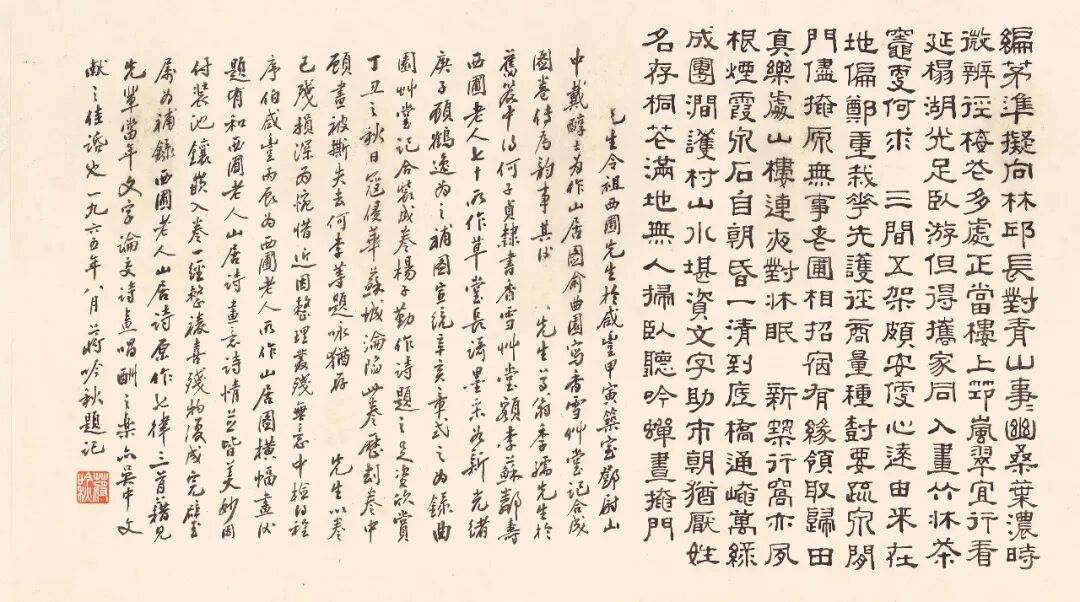 編茅準擬向林邱長對青山事事幽桑葉濃時
微辨徑梅花多處正當樓上笻嵐翠宜行看
延榻湖光足臥游但得攜家同入畫竹牀茶
竈更何求 三間五架頗安便心遠由來在
地偏鄭重栽花先護徑商量種樹要疏泉閒
門儘掩原無事老圃相招宿有緣領取歸田
真樂處山樓連夜對牀眠 新築行窩亦夙
根煙霞泉石自朝昏一清到底橋通崦萬綠
成團澗護村山水堪資文字助市朝猶厭姓
名存桐花滿地無人掃臥聽吟蟬晝掩門
生令祖西圃先生於咸豐甲寅築室鄧尉山
中戴醇士為作山居圖俞曲園寫香雪艸堂記合成
圖卷傳為韵事其後 先生尊翁季孺先生於
舊篋中得何子貞隸書香雪艸堂額李蘇鄰壽
西圃老人七十所作草堂長語墨采如新光緒
庚子顧鶴逸為之補圖宣統辛亥章式之為錄曲
園艸堂記合裝成卷楊子勤作詩題之足資欣賞
丁丑之秋日寇侵華蘇城淪陷此卷歷劫卷中
顧畫被撕失去何李等題咏猶存 先生以卷
已殘損深為惋惜近因整理叢殘無意中檢得程
序伯咸豐丙辰為西圃老人所作山居圖橫幅畫後
題有和西圃老人山居詩畫意詩情並皆美妙因
付裝池鑲嵌入卷一經整裱喜殘物復成完璧並
屬為補錄西圃老人山居詩原作七律三首藉見
先輩當年文字論交詩畫唱酬之樂亦吳中文
獻之佳話也一九六五年八月蔣吟秋題記
蔣吟秋